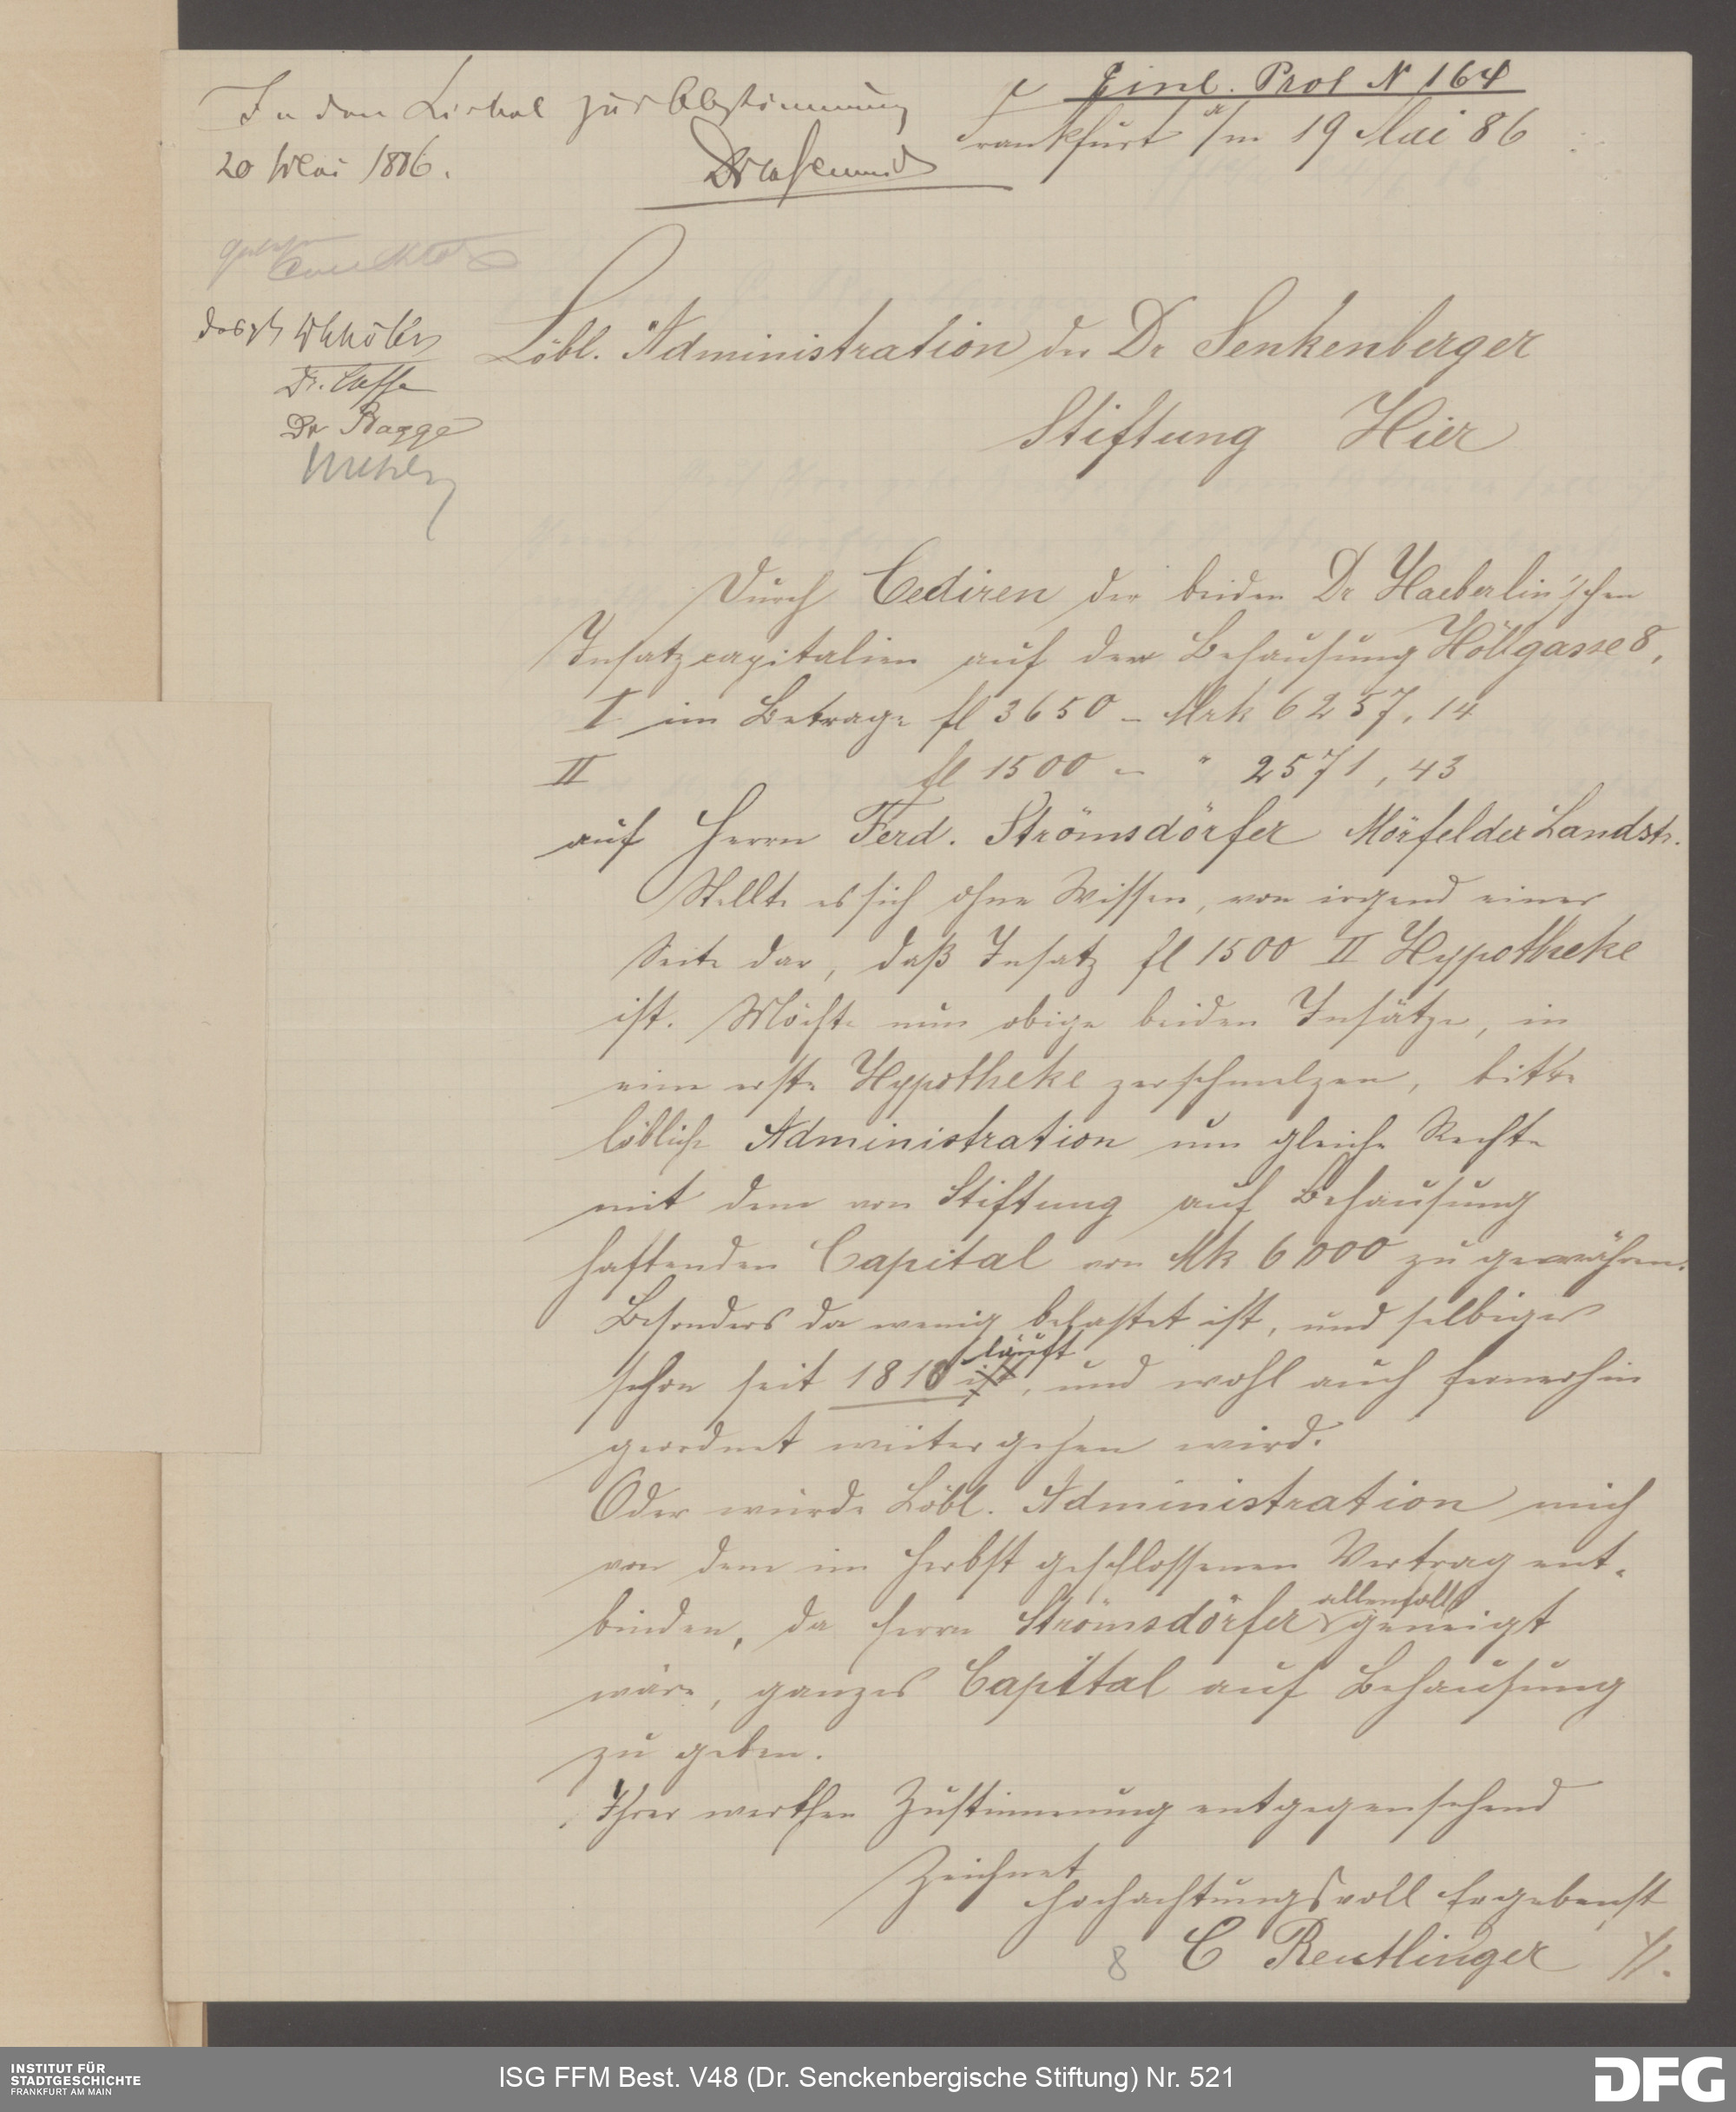 Einl. Prot N 164
Frankfurt a/m 19 Mai 86
In den Zirkel zur Abstimmung
20 Mai 1886.
Dr
Dr
Löbl. Administration der Dr Senkenberger
Stiftung Hier
Durch Cediren der beiden Dr Haeberlin'schen
Insatzcapitalien auf der Behausung Höllgasse 8,
I im Betrage fl 3650 – Mrk 6257,14
II fl 1500 – " 2571,43
auf Herrn Ferd. Strömsdörfer Mörfelder Landstr.
Stellte es sich ohne Wissen, von irgend einer
Seite dar, daß Insatz fl 1500 II Hypotheke
ist. Möchte nun obige beiden Insätze, in
eine erste Hypotheke zerschmelzen, bitte
löbliche Administration um gleiche Rechte
mit dem von Stiftung auf Behausung
haftenden Capital von Mk 6000 zu gewähren.
Besonders da wenig belastet ist, und selbiges
schon seit 1810 ist läuft, und wohl auch fernerhin
geordnet weiter gehen wird.
Oder würde Löbl. Administration mich
von dem im Herbst geschlossenen Vertrag ent-
binden, da Herrn Strömsdörfer allenfalls geneigt
wäre, ganzes Capital auf Behausung
zu geben.
Ihrer werthen Zustimmung entgegensehend
Zeichnet
Hochachtungsvoll Ergebenst
C Reutlinger
8
INSTITUT FÜR
STADTGESCHICHTE
FRANKFURT AM MAIN
ISG FFM Best. V48 (Dr. Senckenbergische Stiftung) Nr. 521
DFG